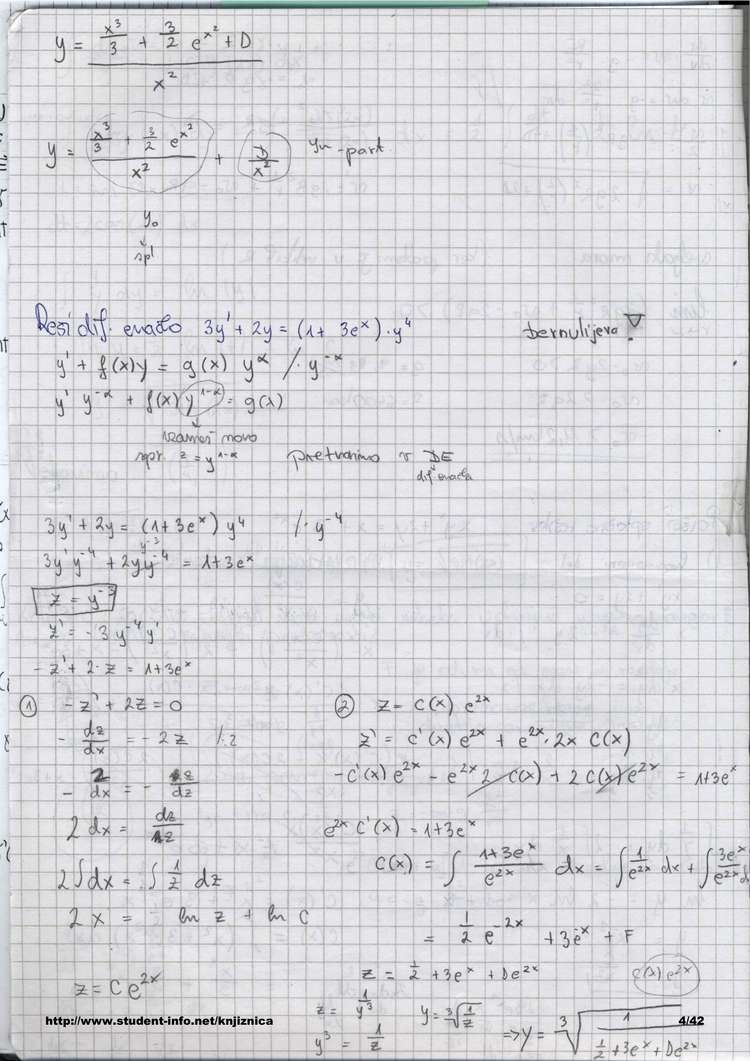 y = (x³/3 + 3/2 e^(x²) + D) / x²
y = (x³/3 + 3/2 e^(x²)) / x² + D/x²
y₀
spl
Reši dif. enačbo 3y' + 2y = (1 + 3e^x) · y⁴ Bernulijeva!
y' + f(x)y = g(x) y^α / · y^-α
y' y^-α + f(x) y^(1-α) = g(x)
novo
spr. z = y^(1-α) pretvorimo v DE
dif. enačba
3y' + 2y = (1 + 3e^x) y⁴ / · y^-4
y^-3
3y' y^-4 + 2y y^-4 = 1 + 3e^x
z = y^-3
z' = -3 y^-4 y'
-z' + 2 · z = 1 + 3e^x
① -z' + 2z = 0
- dz/dx = -2z
2 dx = dz/z
2 ∫ dx = ∫ 1/z dz
2x = ln z + ln C
z = C e^(2x)
② z = C(x) e^(2x)
z' = C'(x) e^(2x) + e^(2x) · 2x C(x)
-C'(x) e^(2x) - e^(2x) 2 C(x) + 2 C(x) e^(2x) = 1 + 3e^x
e^(2x) C'(x) = 1 + 3e^x
C(x) = ∫ (1 + 3e^x)/e^(2x) dx = ∫ 1/e^(2x) dx + ∫ 3e^x/e^(2x) d
= 1/2 e^(-2x) + 3e^(-x) + F
z = 1/2 + 3e^x + De^(2x) C(x) e^(2x)
z = 1/y³ y = ³√(1/z) => y = ³√(1 / (1/2 + 3e^x + De^(2x)))
y³ = 1/z
http://www.student-info.net/knjiznica 4/42